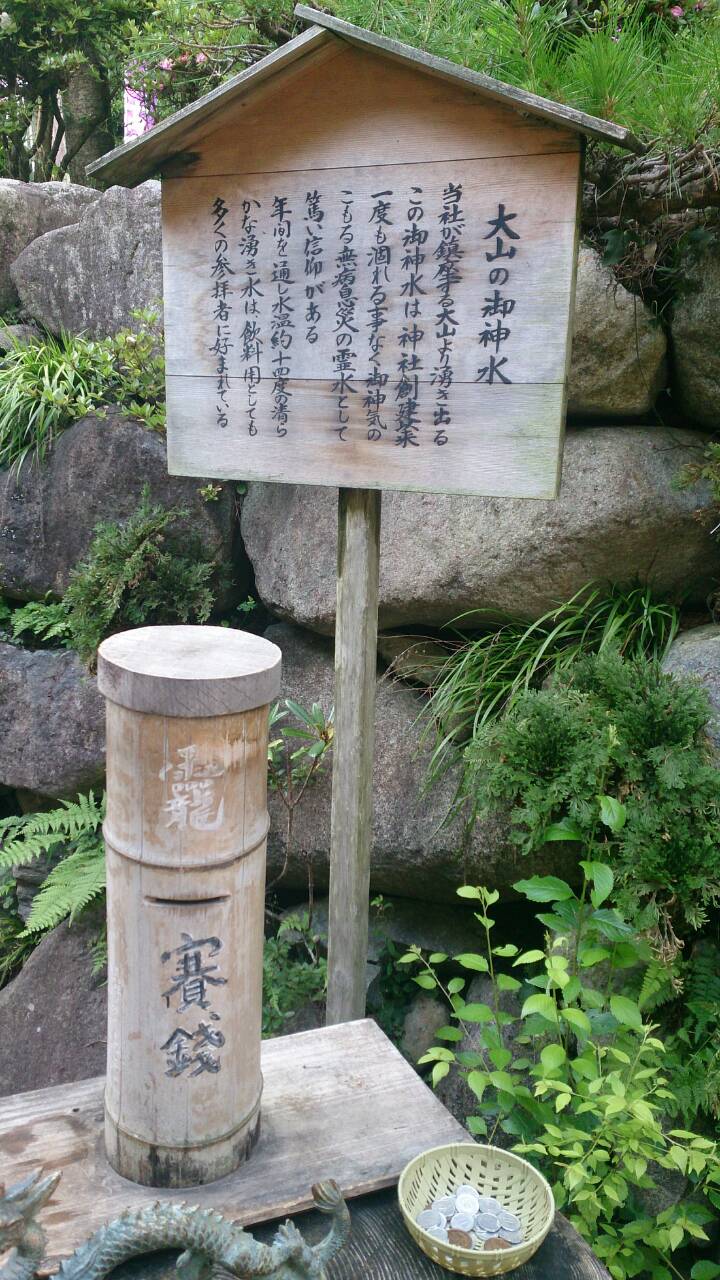 大山の御神水
当社が鎮座する大山より湧き出る
この御神水は神社創建以来
一度も涸れる事なく御神気の
こもる無病息災の霊水として
篤い信仰がある
年間を通し水温約十四度の清ら
かな湧き水は飲料用としても
多くの参拝者に好まれている
龍
賽銭